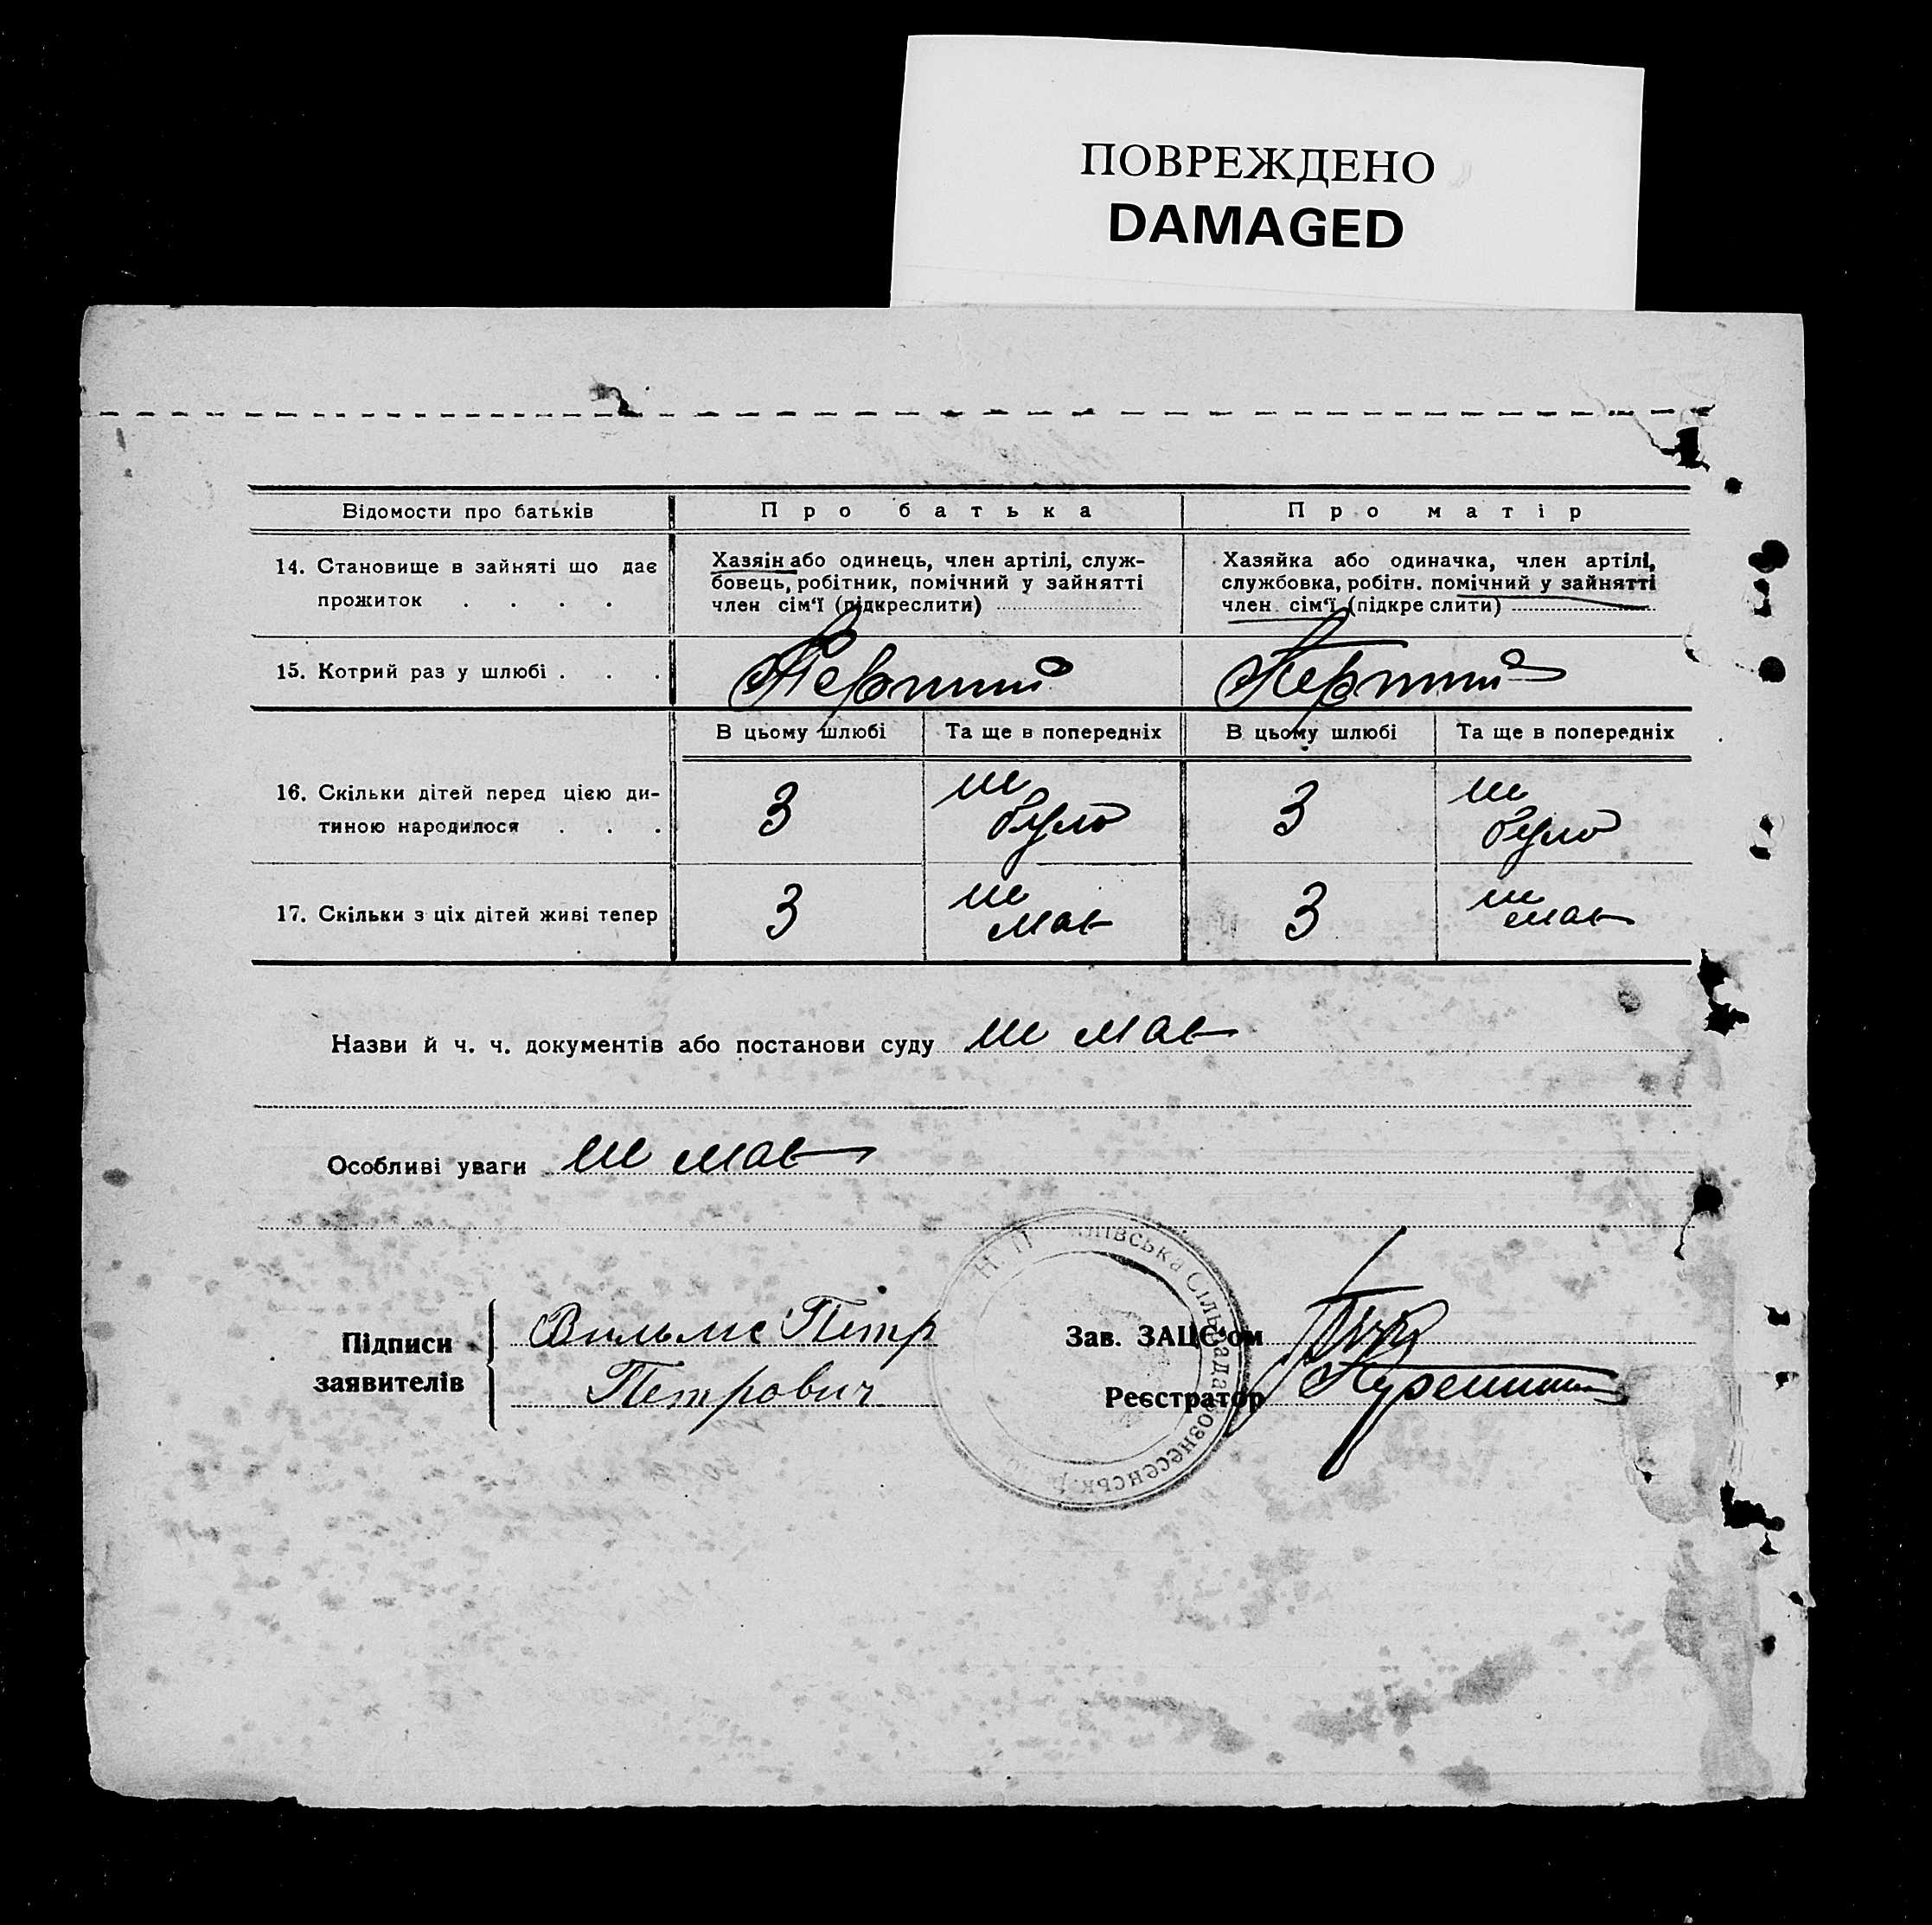 ПОВРЕЖДЕНО
DAMAGED
Відомости про батьків
Про батька
Про матір
14. Становище в зайняті що дає
прожиток . . . .
Хазяін або одинець, член артілі, служ-
бовець, робітник, помічний у зайнятті
член сім'ї (підкреслити)
Хазяйка або одиначка, член артілі,
службовка, робітн. помічний у зайнятті
член сім'ї (підкреслити)
15. Котрий раз у шлюбі . . .
Перший
Перший
В цьому шлюбі
Та ще в попередніх
В цьому шлюбі
Та ще в попередніх
16. Скільки дітей перед цією ди-
тиною народилося . . .
3
не
було
3
не
було
17. Скільки з ціх дітей живі тепер
3
не
має
3
не
має
Назви й ч. ч. документів або постанови суду не має
Особливі уваги не має
Підписи
заявителів
Вильмс Петр
Петрович
Зав. ЗАЦС'ом
Реєстратор
івська Сільрада
ознесенськ